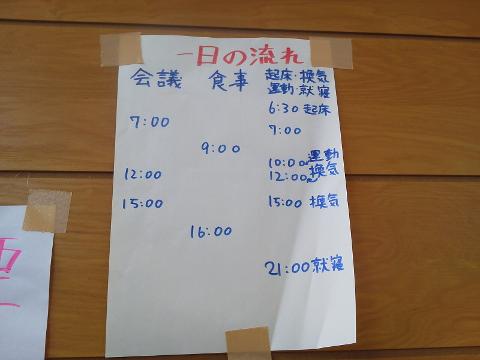 一日の流れ
会議 食事 起床・換気
運動・就寝
6:30 起床
7:00 7:00
9:00
10:00~運動
12:00 12:00~換気
15:00 15:00 換気
16:00
21:00 就寝